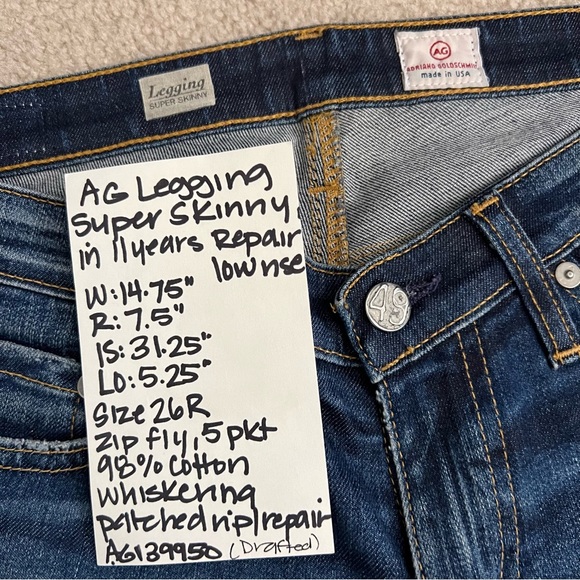 Legging
SUPER SKINNY
AG
ADRIANO GOLDSCHMIE
made in USA
AG Legging
Super Skinny,
in 11 years Repair
low rise
W: 14.75"
R: 7.5"
IS: 31.25"
LO: 5.25"
Size 26R
zip fly, 5 pkt
98% cotton
whiskering
patched rip/repair
AG139950 (Drafted)